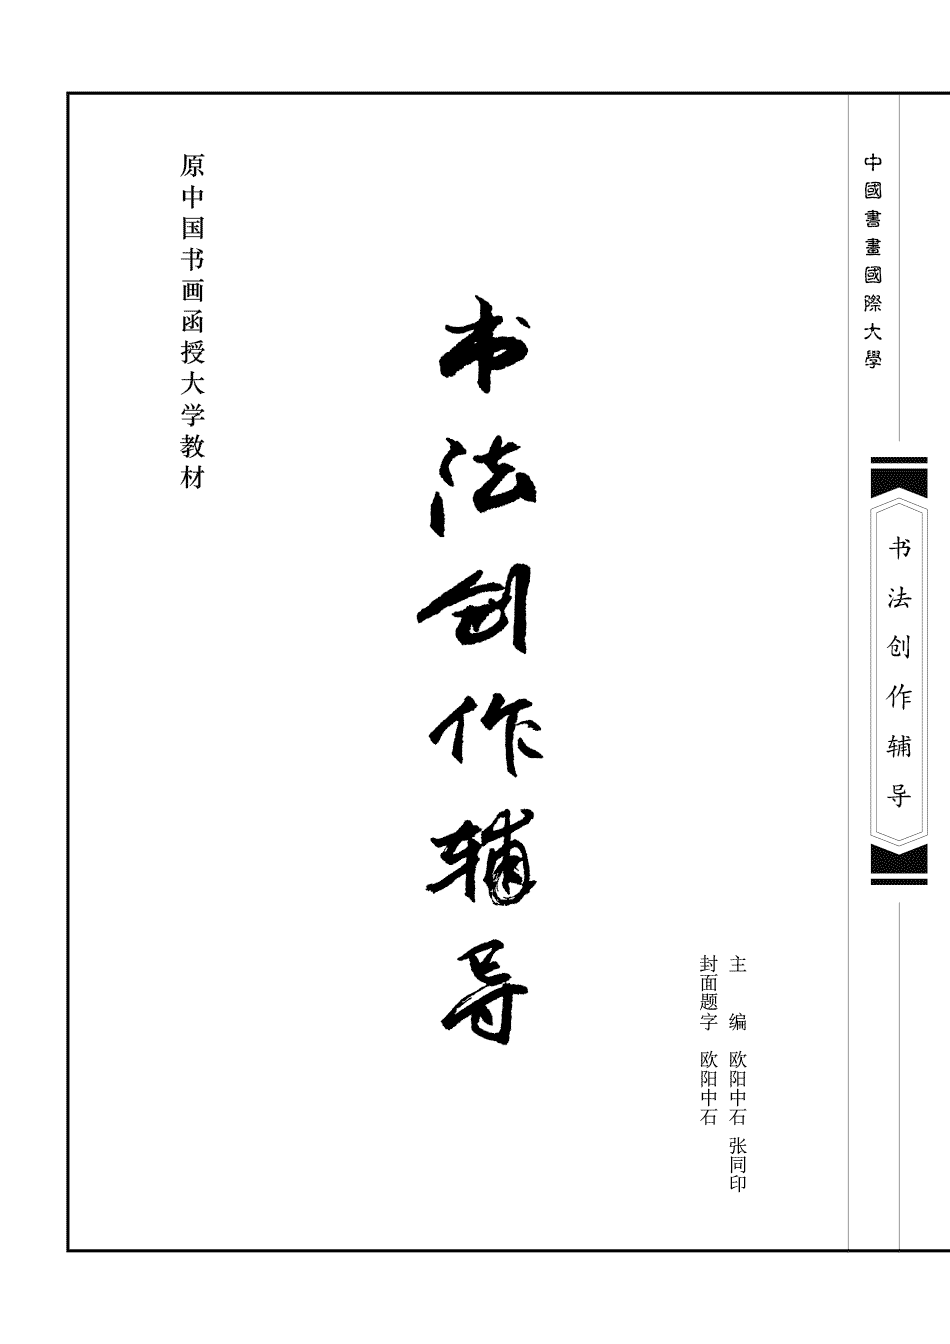 中國書畫國際大學
书法创作辅导
主 编 欧阳中石 张同印
封面题字 欧阳中石
书法创作辅导
原中国书画函授大学教材